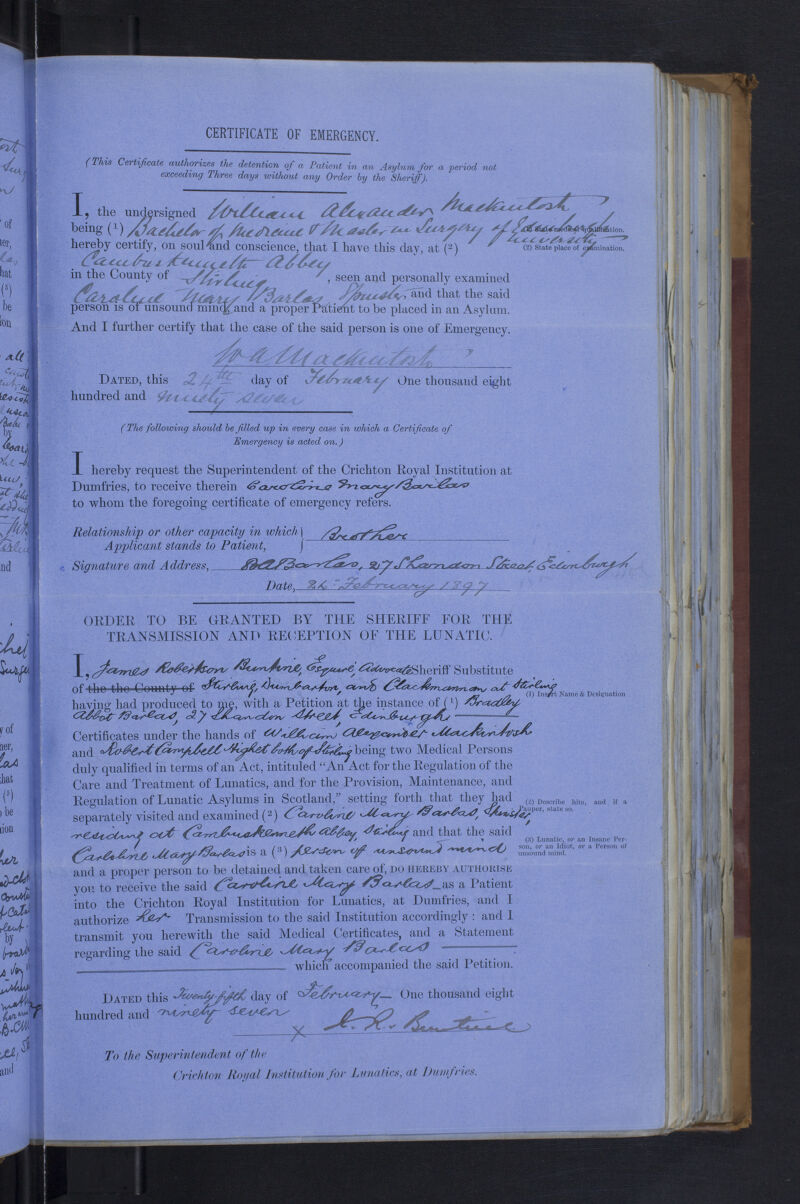 CERTIFICATE OF EMERGENCY.
(This Certificate authorizes the detention of a Patient in an Asylum for a period not
exceeding Three days without any Order by the Sheriff).
I, the undersigned William Alexander Mackintosh
being (1) Bachelor of Medicine & Master in Surgery of Edinburgh University
(2) State place of examination.
hereby certify, on soul and conscience, that I have this day, at (2)
Cambuskenneth Abbey
in the County of Stirling, seen and personally examined
Caroline Mary Barlas, Spinster, and that the said
person is of unsound mind, and a proper Patient to be placed in an Asylum.
And I further certify that the case of the said person is one of Emergency.
W A Mackintosh
DATED, this 24th day of February One thousand eight
hundred and ninety seven
(The following should be filled up in every case in which a Certificate of
Emergency is acted on.)
I hereby request the Superintendent of the Crichton Royal Institution at
Dumfries, to receive therein Caroline Mary Barlas
to whom the foregoing certificate of emergency refers.
Relationship or other capacity in which } Brother
Applicant stands to Patient,
Signature and Address, BABarlas, 27 Shandon Street, Edinburgh
Date, 24 February 1897
ORDER TO BE GRANTED BY THE SHERIFF FOR THE
TRANSMISSION AND RECEPTION OF THE LUNATIC.
I, James Robertson Buntine, Esquire, Advocate Sheriff Substitute
of the the County of Stirling, Dumbarton, and Clackmannan at Stirling
(1) Insert Name & Designation
having had produced to me, with a Petition at the instance of (1) Bradley
Abbot Barlas, 27 Shandon Street, Edinburgh
Certificates under the hands of William Alexander Mackintosh
and Robert Campbell Highet both of Stirling being two Medical Persons
duly qualified in terms of an Act, intituled "An Act for the Regulation of the
Care and Treatment of Lunatics, and for the Provision, Maintenance, and
Regulation of Lunatic Asylums in Scotland," setting forth that they had
(2) Describe him, and if a
Pauper, state so.
separately visited and examined (2) Caroline Mary Barlas, Spinster,
residing at Cambuskenneth Abbey, Stirling and that the said
(3) Lunatic, or an Insane Per-
son, or an Idiot, or a Person of
unsound mind.
Caroline Mary Barlas is a (3) person of unsound mind
and a proper person to be detained and taken care of, DO HEREBY AUTHORISE
you to receive the said Caroline Mary Barlas as a Patient
into the Crichton Royal Institution for Lunatics, at Dumfries, and I
authorize her Transmission to the said Institution accordingly: and I
transmit you herewith the said Medical Certificates, and a Statement
regarding the said Caroline Mary Barlas
which accompanied the said Petition.
DATED this Twenty fifth day of February One thousand eight
hundred and ninety seven
x J. R. Buntine
To the Superintendent of the
Crichton Royal Institution for Lunatics, at Dumfries.